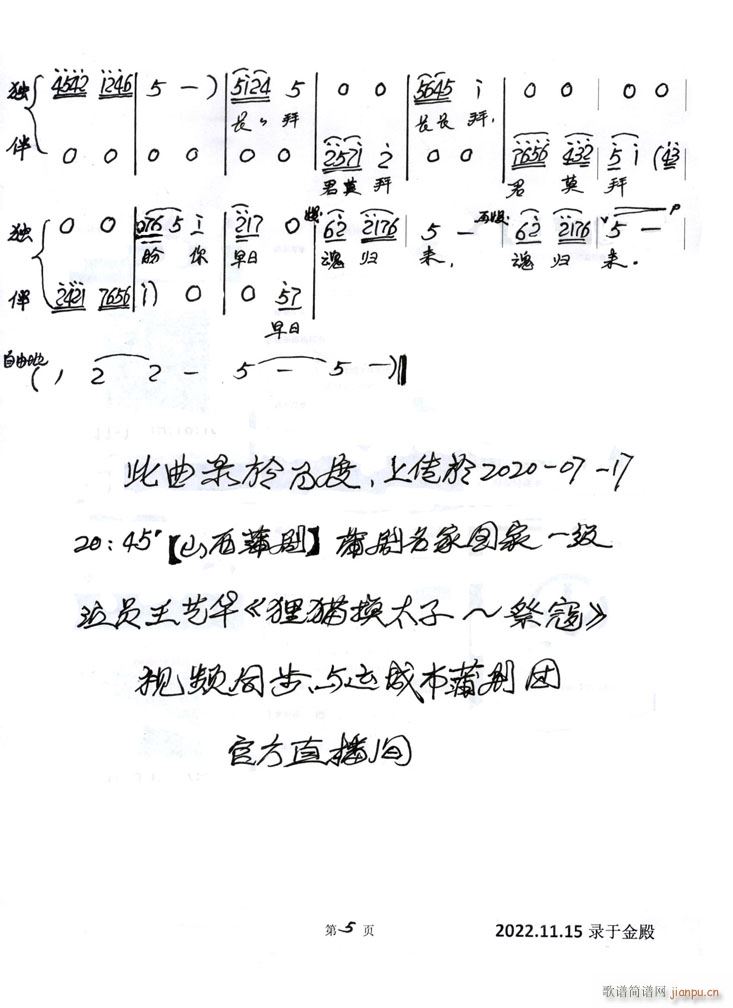 独 4542 1246 | 5 — ) | 5124 5 | 0 0 | 5645 i | 0 0 | 0 0
长 〃 拜 长长拜，
伴 0 0 | 0 0 | 0 0 | 2571 2 | 0 0 | 7656 432 | 5 i (43
君莫拜 君 莫 拜
独 0 0 | 076 5 i | 217 0 | 62 2176 | 5 — | 62 2176 | 5 — P
盼 你 早日 魂 归 来， 魂 归 来。
伴 2421 7656 | i) 0 | 0 57
早日
自由地 ( , 2 2 — 5 — 5 —)
此曲录於百度，上传於2020-07-17
20:45【山西蒲剧】蒲剧名家国家一级
演员王艺华《狸猫换太子～祭寇》
视频同步与运城市蒲剧团
官方直播间
第 5 页
2022.11.15 录于金殿
歌谱简谱网
jianpu.cn